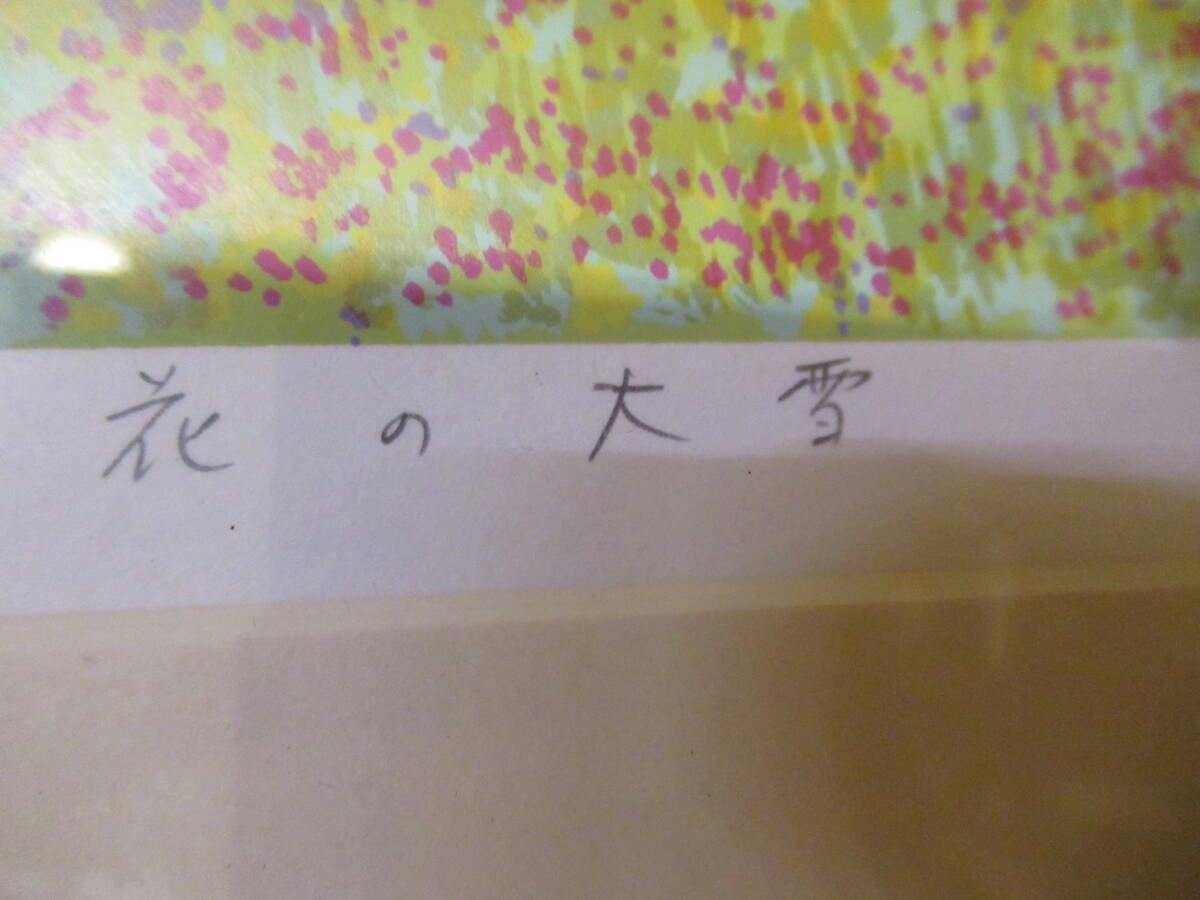 花の大雪